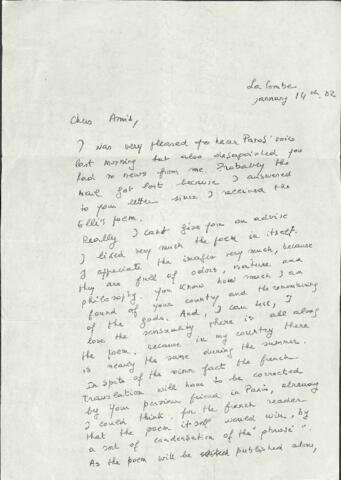 La Combe
january 14th. 82
Chers Amis,
I was very pleased to hear Paros' voice
last morning but also desapointed you
had no news from me. Probably the
mail got lost because I answered
to your letter since I received the
Elli's poem.
Really I can't give you an advise
I liked very much the poem in itself.
I appreciate the images very much, because
they are full of odors, nature and
philosophy. You know how much I am
found of your country and the remembering
of the gods. And, I can use, I
love the sensuality there is all along
the poem. because in my country there
is nearly the same during the summer.
In spite of the minor fact the french
translation will have to be corrected
by your persian friend in Paris, already
I could think. for the french reader
that the poem itself would win, by
a sort of condensation of the "phrase".
As the poem will be published alone,